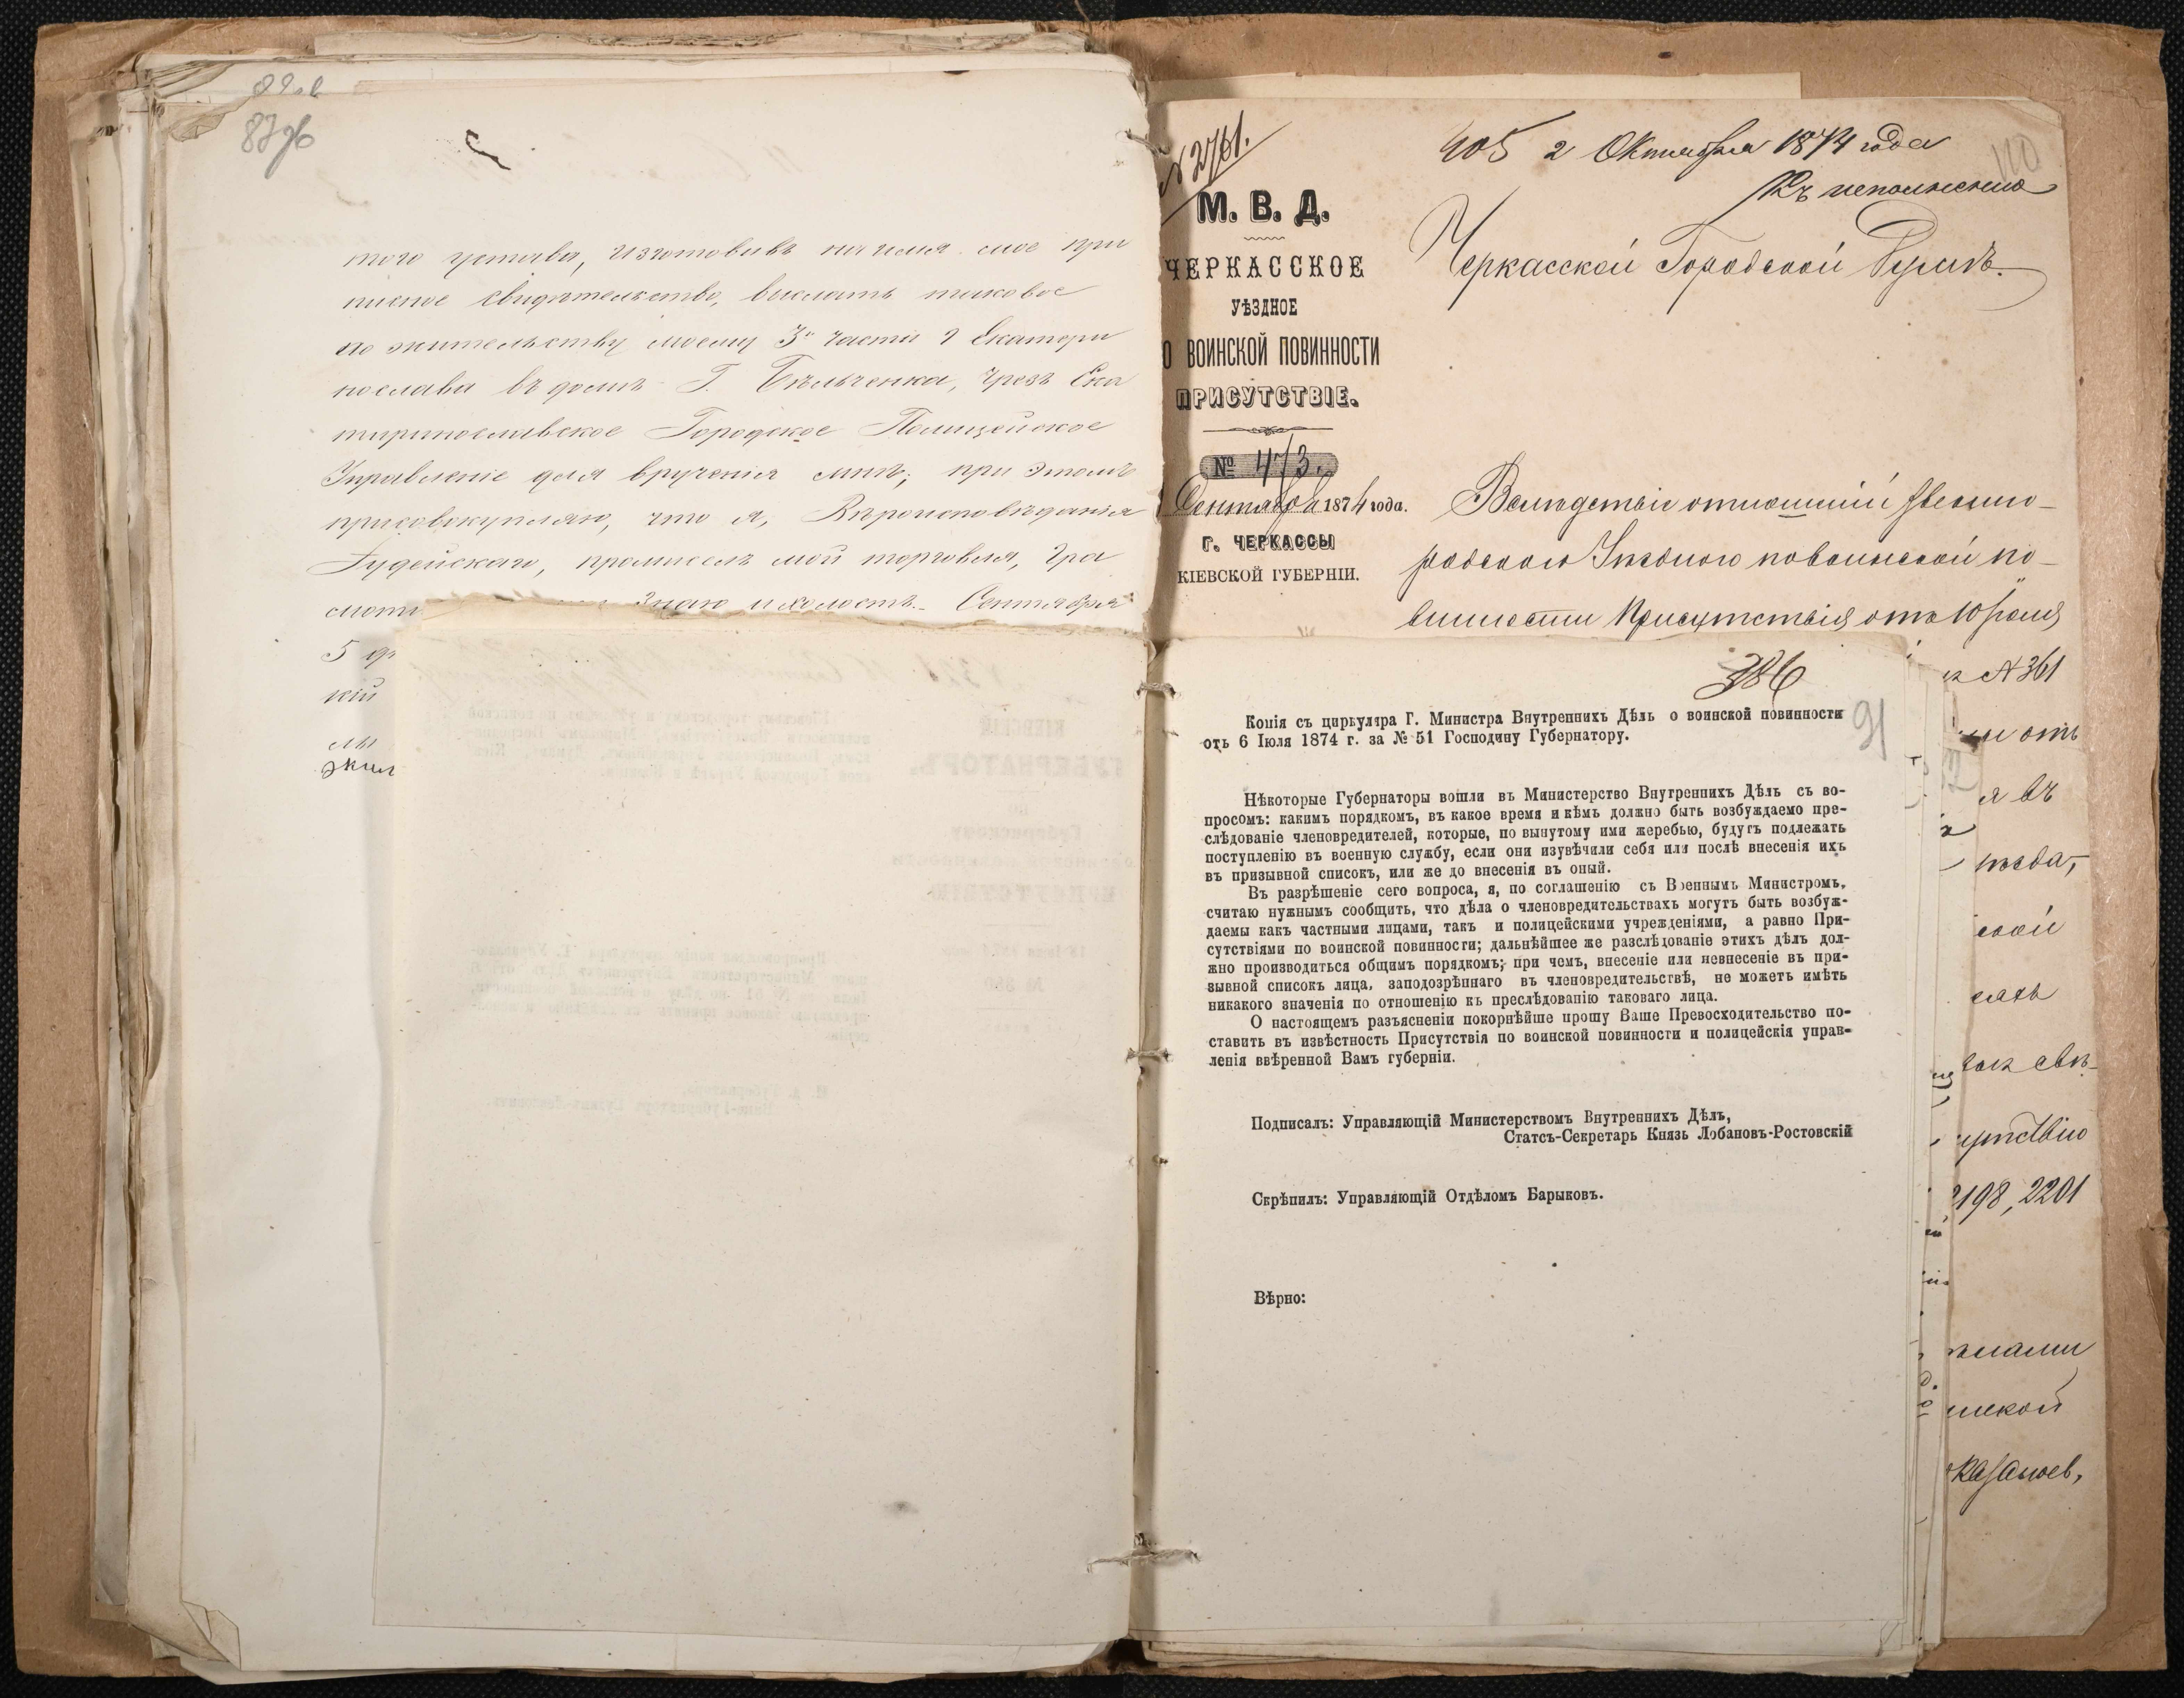 87 об
того устава, изготовивъ на имя мое при
писное свидѣтельство, выслать таковое
по жительству моему 3й части г Екатери
нослава въ домѣ Г. Бѣльченка, чрезъ Ека
териносла​вское Городское Полицейское
Управленіе для врученія мнѣ; при этомъ
присовокупляю, что я, Вѣроисповѣданія
Іудейскаго, промыселъ мой торговля, гра
моти знаю и холостъ. Сентября
5 
кій
жил
№ 2761.
М. В. Д.
ЧЕРКАССКОЕ
УѢЗДНОЕ
О ВОИНСКОЙ ПОВИННОСТИ
ПРИСУТСТВІЕ.
№ 473.
Сентября 1874 года.
Г. ЧЕРКАССЫ
КІЕВСКОЙ ГУБЕРНІИ.
405 2 Октября 1874 года
110
Къ исполненію
Черкасской Городской Думѣ.
Вслѣдствіе отношеній Звенино-
родскаго Уѣзднаго по воинской по-
винности Присутствія отъ 10 Іюля
№ 361
отъ
я въ
ской
2198, 2201
386
91
Копія съ циркуляра Г. Министра Внутреннихъ Дѣлъ о воинской повинности
отъ 6 Іюля 1874 г. за № 51 Господину Губернатору.
Нѣкоторые Губернаторы вошли въ Министерство Внутреннихъ Дѣлъ съ во-
просомъ: какимъ порядкомъ, въ какое время и кѣмъ должно быть возбуждаемо пре-
слѣдованіе членовредителей, которые, по вынутому ими жеребью, будутъ подлежать
поступленію въ военную службу, если они изувѣчили себя или послѣ внесенія ихъ
въ призывной списокъ, или же до внесенія въ оный.
Въ разрѣшеніе сего вопроса, я, по соглашенію съ Военнымъ Министромъ,
считаю нужнымъ сообщить, что дѣла о членовредительствахъ могутъ быть возбуж-
даемы какъ частными лицами, такъ и полицейскими учрежденіями, а равно При-
сутствіями по воинской повинности; дальнѣйшее же разслѣдованіе этихъ дѣлъ дол-
жно производиться общимъ порядкомъ; при чемъ, внесеніе или невнесеніе въ при-
зывной списокъ лица, заподозрѣннаго въ членовредительствѣ, не можетъ имѣть
никакого значенія по отношенію къ преслѣдованію таковаго лица.
О настоящемъ разъясненіи покорнѣйше прошу Ваше Превосходительство по-
ставить въ извѣстность Присутствія по воинской повинности и полицейскія управ-
ленія ввѣренной Вамъ губерніи.
Подписалъ: Управляющій Министерствомъ Внутреннихъ Дѣлъ,
Статсъ-Секретарь Князь Лобановъ-Ростовскій
Скрѣпилъ: Управляющій Отдѣломъ Барыковъ.
Вѣрно: